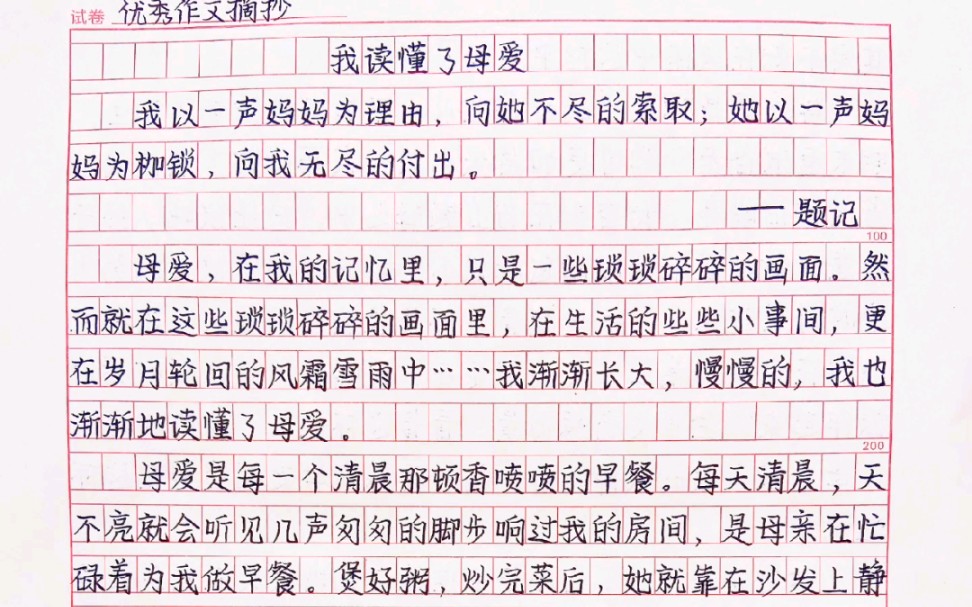 试卷 优秀作文摘抄
我读懂了母爱
我以一声妈妈为理由，向她不尽的索取；她以一声妈
妈为枷锁，向我无尽的付出。
——题记
100
母爱，在我的记忆里，只是一些琐琐碎碎的画面。然
而就在这些琐琐碎碎的画面里，在生活的些些小事间，更
在岁月轮回的风霜雪雨中……我渐渐长大，慢慢的，我也
渐渐地读懂了母爱。
200
母爱是每一个清晨那顿香喷喷的早餐。每天清晨，天
不亮就会听见几声匆匆的脚步响过我的房间，是母亲在忙
碌着为我做早餐。煲好粥，炒完菜后，她就靠在沙发上静